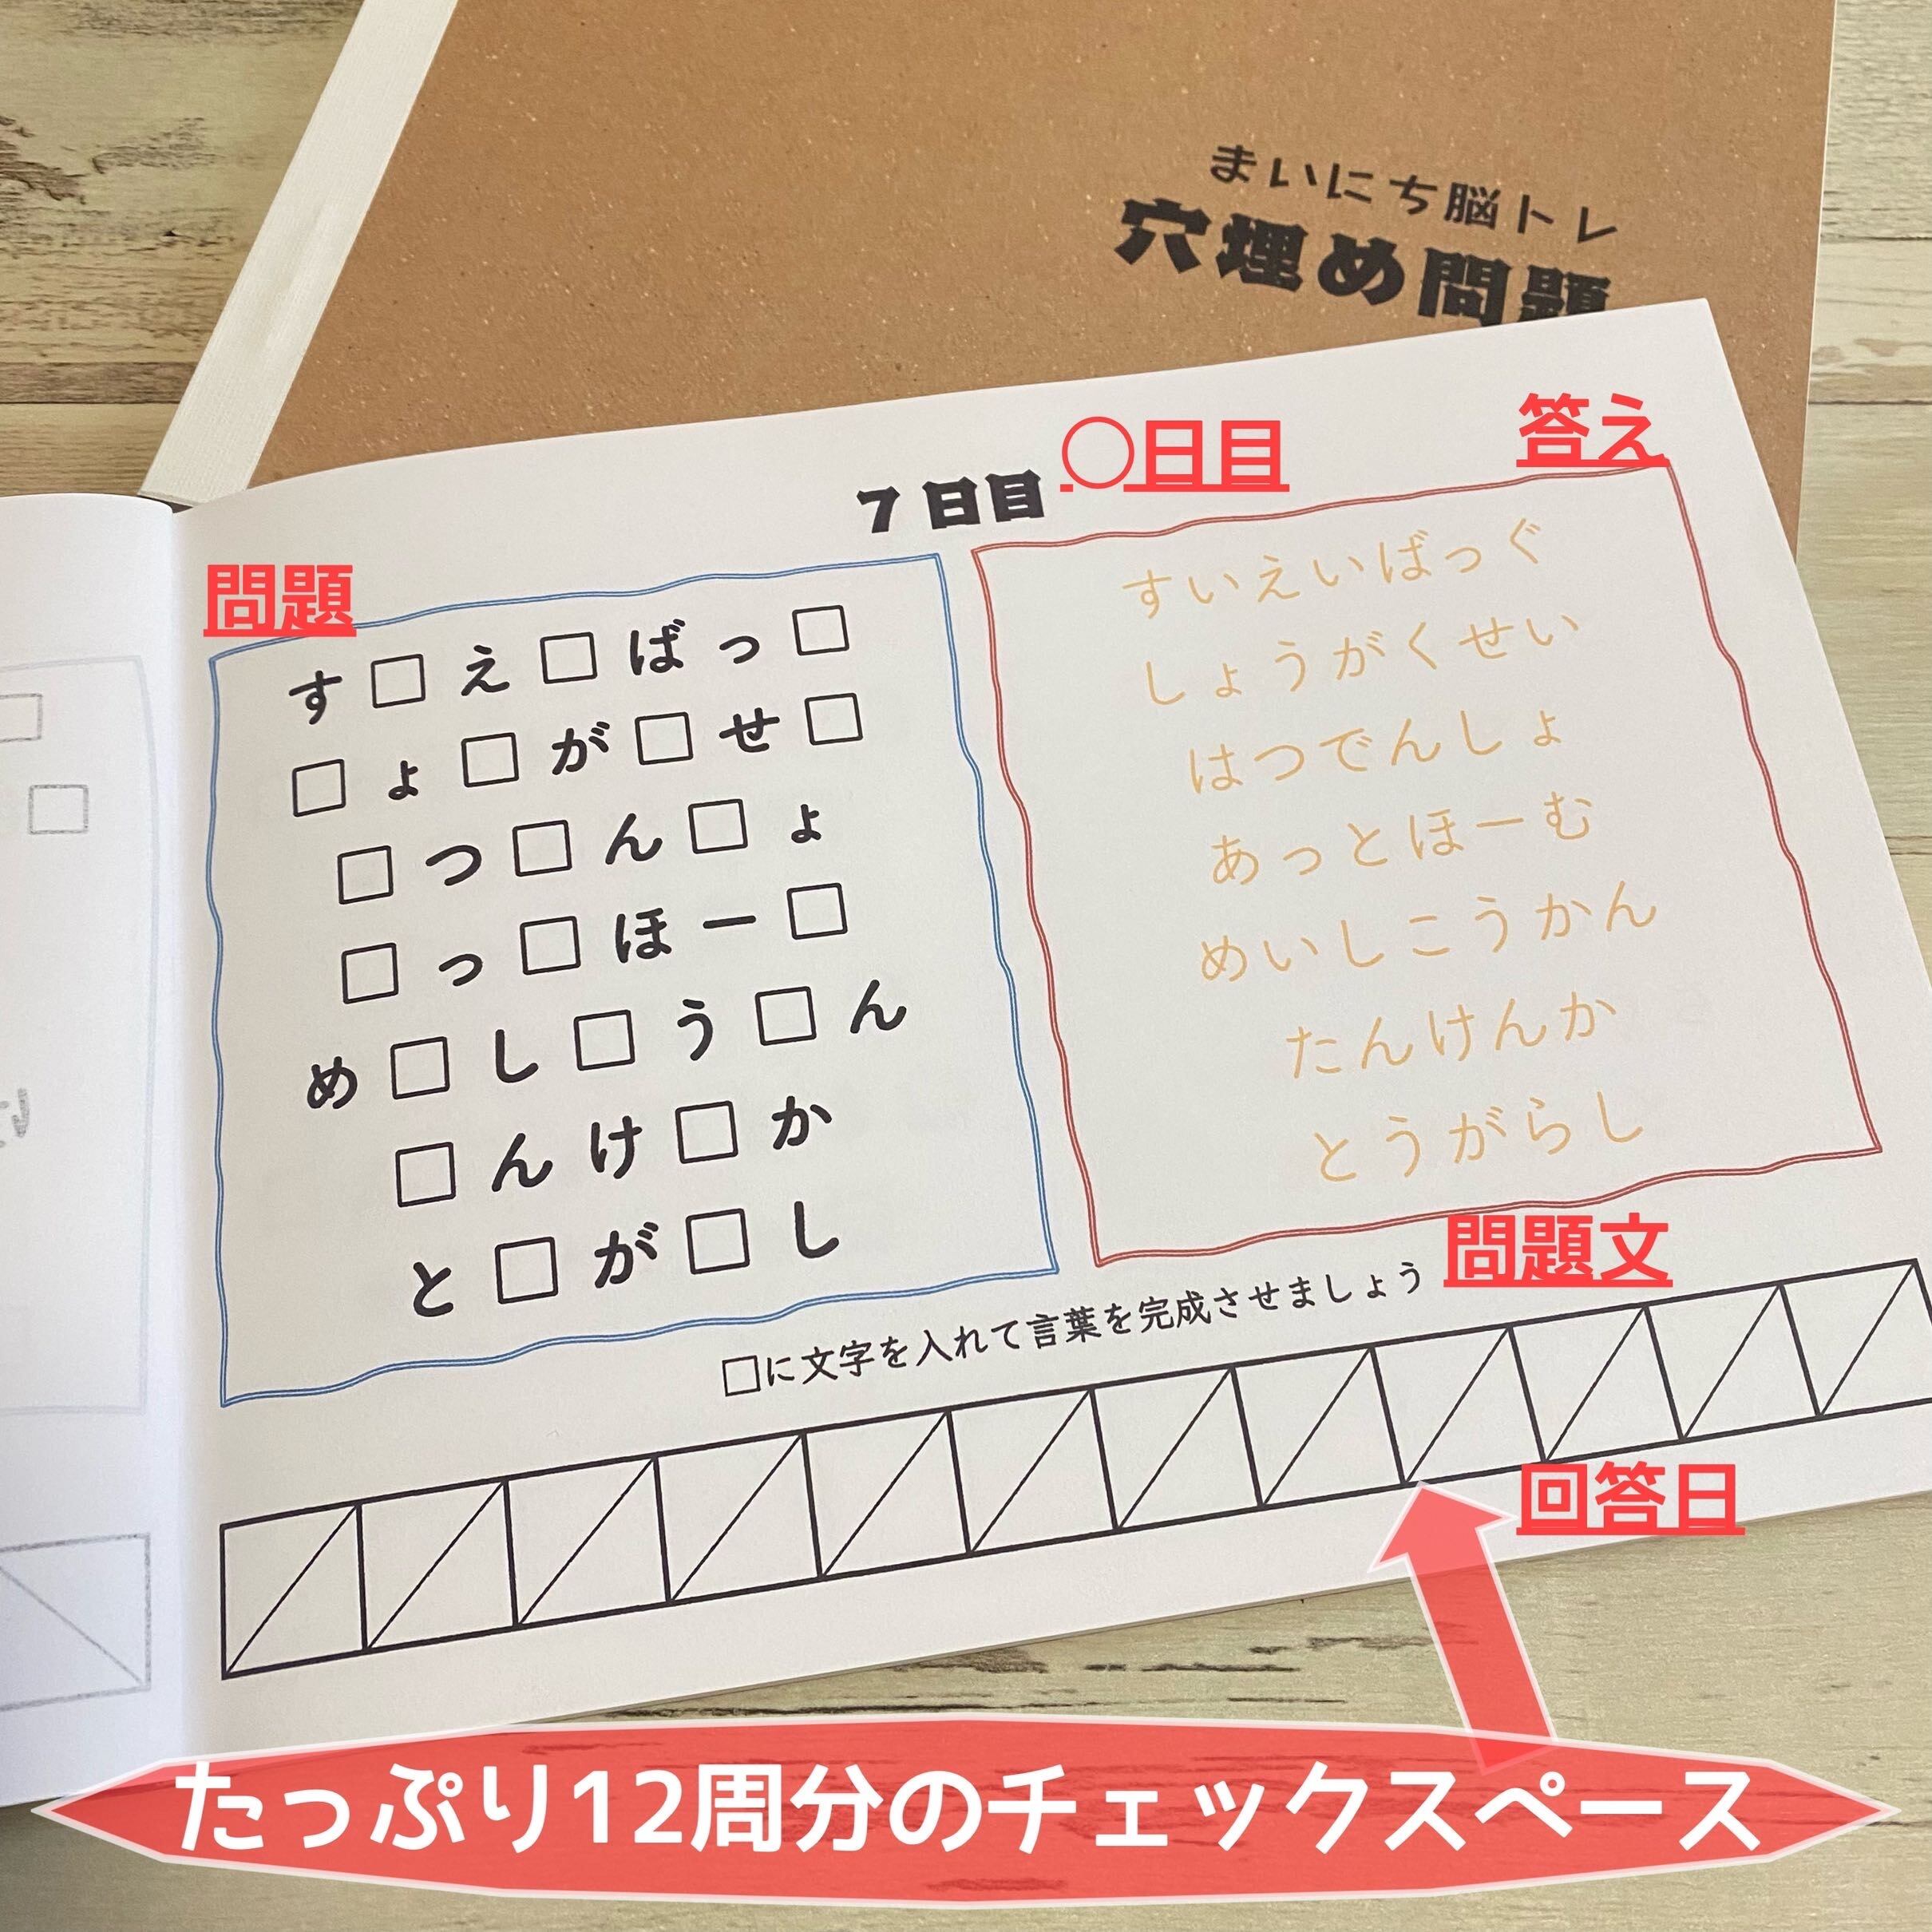 まいにち脳トレ
穴埋め問題
〇日目
答え
7日目
問題
す□え□ばっ□
□ょ□が□せ□
□つ□ん□ょ
□っ□ほー□
め□し□う□ん
□んけ□か
と□が□し
すいえいばっぐ
しょうがくせい
はつでんしょ
あっとほーむ
めいしこうかん
たんけんか
とうがらし
問題文
□に文字を入れて言葉を完成させましょう
回答日
たっぷり12周分のチェックスペース